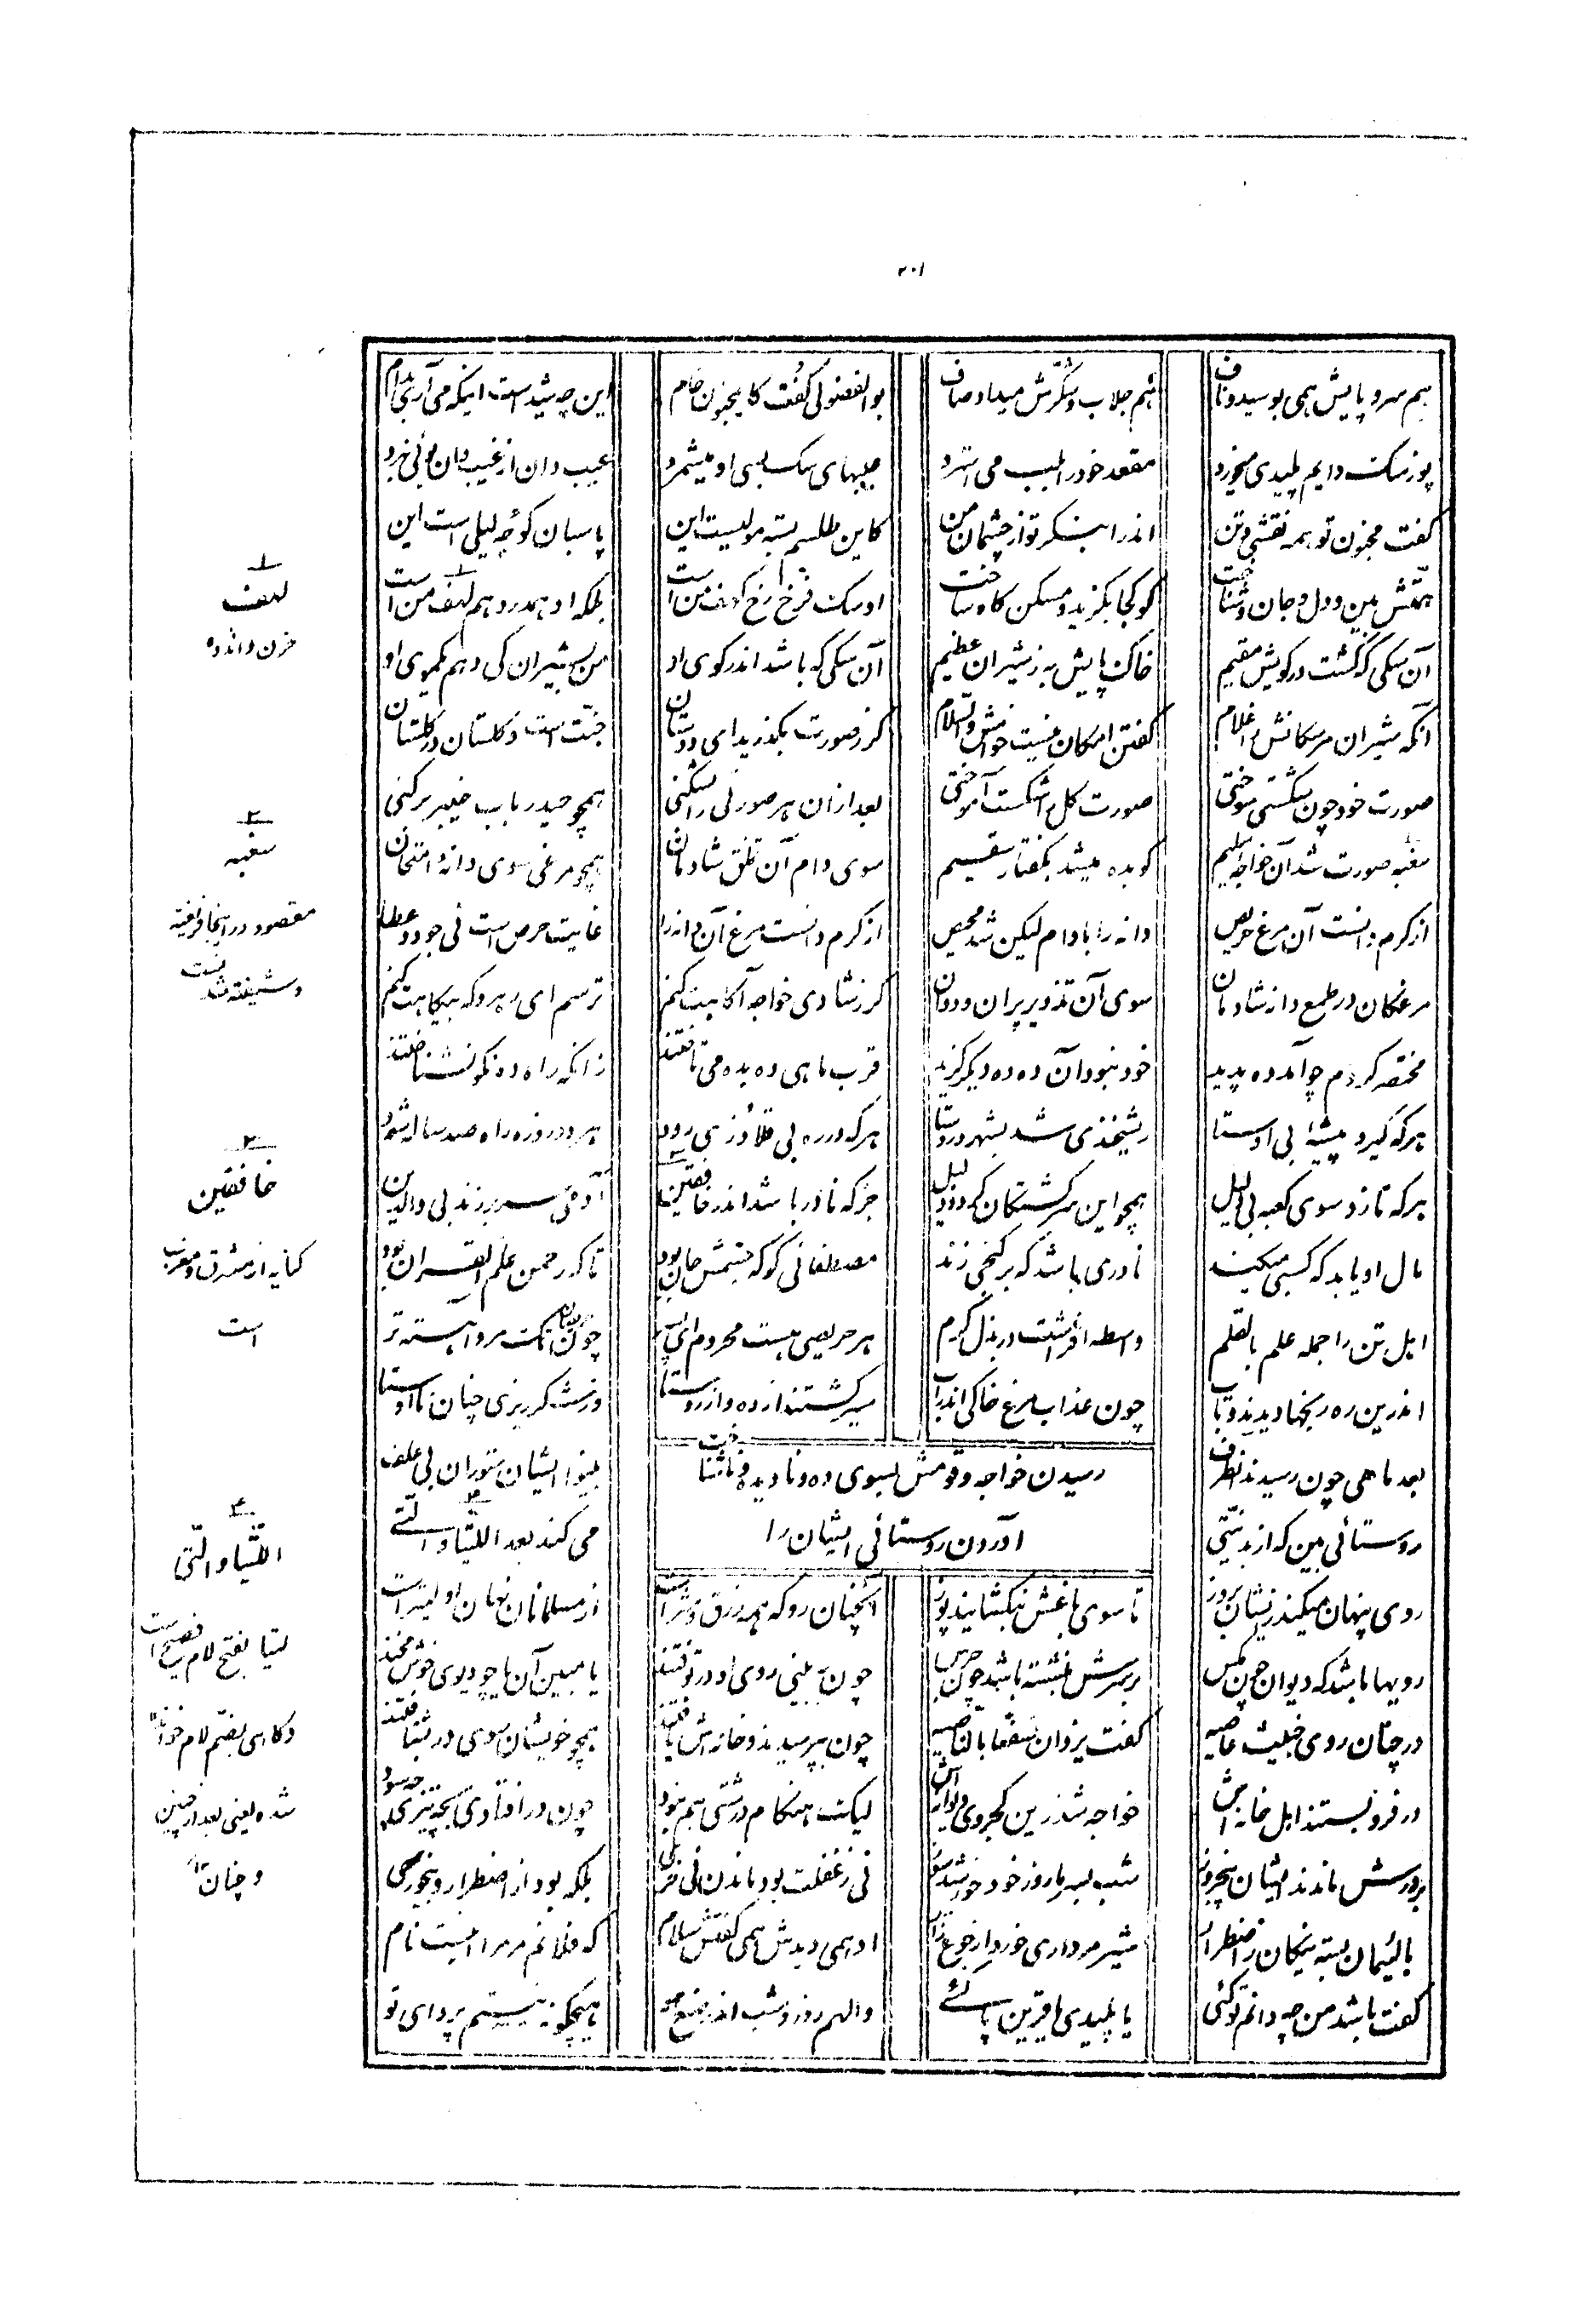 ۲۰۱
هم سر و پایش همی بوسید و ناف هم جلاب و شکرش میداد صاف بوالفضولی گفت کای مجنون خام این چه شید است اینکه می آری مدام
پوز سگ دایم پلیدی میخورد مقعد خود را بلب می استرد عیبهای سگ بسی او میشمرد عیب دان از غیب دان بوئی نبرد
گفت مجنون تو همه نقشی و تن اندرا بنگر تو از چشمان من کاین طلسم بسته مولیست این پاسبان کوچه لیلی است این
همتش بین و دل و جان و شناخت کو کجا بگزید و مسکن گاه ساخت او سگ فرخ رخ کهف من است بلکه او همدرد و هم لهف من است
آن سگی که گشت در کویش مقیم خاک پایش به ز شیران عظیم آن سگی که باشد اندر کوی او من بشیران کی دهم یکموی او
آنکه شیران مر سگانش را غلام گفتن امکان نیست خامش والسلام گر ز صورت بگذرید ای دوستان جنت است و گلستان در گلستان
صورت خود چون شکستی سوختی صورت کل را شکست آموختی بعد از ان هر صورتی را بشکنی همچو حیدر باب خیبر بر کنی
سغبه صورت شد آن خواجه سلیم کو بده میشد بگفتار سقیم سوی دام آن تملق شادمان همچو مرغی سوی دانه و امتحان
از کرم دانست آن مرغ حریص دانه را با دام لیکن شد محیص از کرم دانست مرغ آن دانه را غایت حرص است نی جود و عطا
مرغکان در طمع دانه شادمان سوی آن تزویر پران و دوان گر ز شادی خواجه آگاهت کنم ترسم ای رهرو که بیگاهت کنم
مختصر کردم چو آمد ده پدید خود نبود آن ده ده دیگر گزید قرب ماهی ده بده می تافتند زانکه راه ده نکو نشناختند
هر که گیرد پیشه بی اوستا ریشخندی شد بشهر و روستا هر که در ره بی قلاوزی رود هر دو روزه راه صد ساله شود
هر که تازد سوی کعبه بی دلیل همچو این سرگشتگان گردد ذلیل جز که نادر باشد اندر خافقین آدمی سر بر زند بی والدین
مال او یابد که کسبی میکند نادری باشد که بر گنجی زند مصطفائی کو که جسمش جان بود تا که رحمن علم القرآن بود
اهل تن را جمله علم بالقلم واسطه افراشت در بذل کرم هر حریصی هست محروم ای پسر چون حریصان تک مرو آهسته تر
اندرین ره رنجها دیدند و تاب چون عذاب مرغ خاکی اندر آب سیر گشتند از ده و از روستا وز شکر ریزی چنان نا اوستا
رسیدن خواجه و قومش بسوی ده و نادیده و ناشناخت
آوردن روستائی ایشان را
بعد ماهی چون رسیدند آنطرف بینوا ایشان ستوران بی علف
روستائی بین که از بدنیتی می کند بعد اللتیا و التی
روی پنهان میکند زیشان بروز تا سوی باغش نبگشایند پوز آنچنان رو که همه زرق و شر است از مسلمانان نهان اولیتر است
رویها باشد که دیوان چون مگس بر سرش بنشسته باشد چون حرس چون ببینی روی او در تو فتند یا مبین آن یا چو دیدی خوش مخند
در چنان روی خبیث عاصیه گفت یزدان نسفعا بالناصیه چون بپرسیدند و خانه اش یافتند همچو خویشان سوی در بشتافتند
در فرو بستند اهل خانه اش خواجه شد زین کجروی دیوانه اش لیک هنگام درشتی هم نبود چون در افتادی بچه تیزی چه سود
بر درش ماندند ایشان پنجروز شب بسرما روز خود خورشید سوز نی ز غفلت بود ماندن نی خری بلکه بود از اضطرار و بیخوری
با لئیمان بسته نیکان ز اضطرار شیر مرداری خورد از جوع زار او همی دیدش همی گفتش سلام که فلانم مر مرا اینست نام
گفت باشد من چه دانم تو کئی یا پلیدی یا قرین پاکئی والهم روز و شب اندر صنع هو هیچگونه نیستم پروای تو
۱
لهف
حزن و اندوه
۲
سغبه
مقصود در اینجا فریفته
و شیفته شدنست
۳
خافقین
کنایه از مشرق و مغرب
است
۴
اللتیا و التی
لتیا بفتح لام فصیح است
و گاهی بضم لام خوانده
شده یعنی بعد از چنین
و چنان